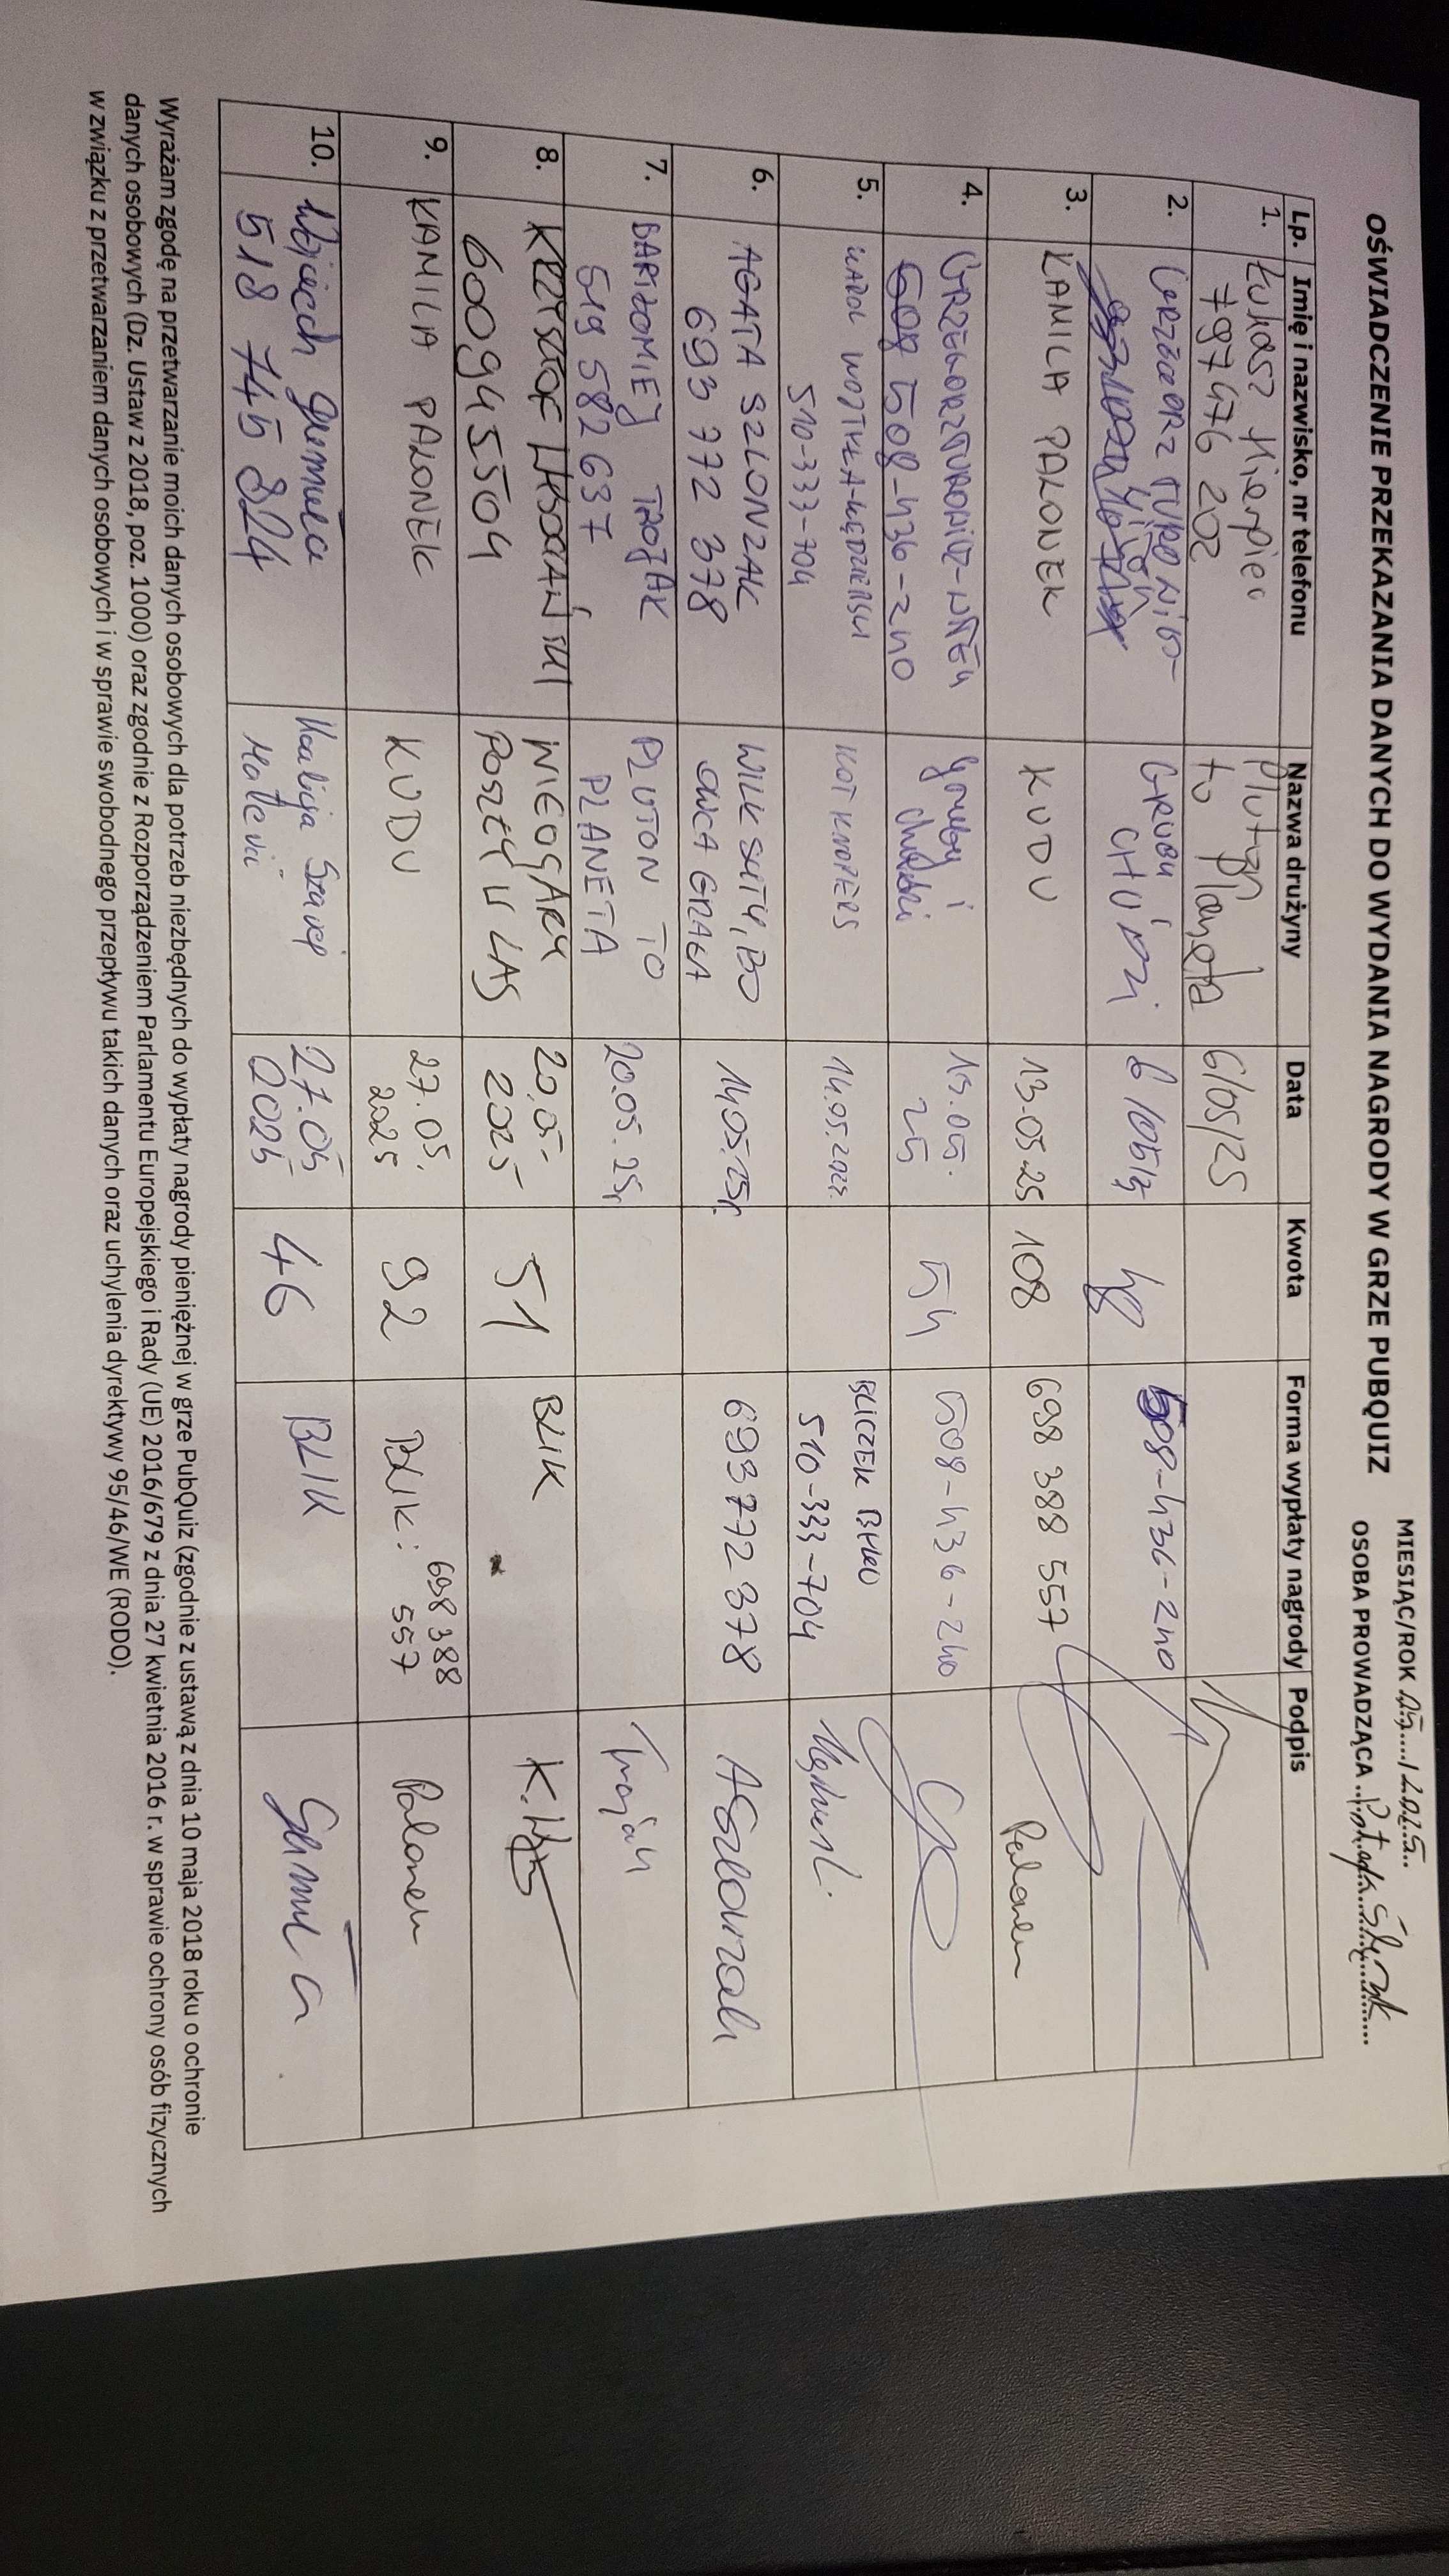 OŚWIADCZENIE PRZEKAZANIA DANYCH DO WYDANIA NAGRODY W GRZE PUBQUIZ
MIESIĄC/ROK 05..../2025..
OSOBA PROWADZĄCA
Lp. Imię i nazwisko, nr telefonu Nazwa drużyny Data Kwota Forma wypłaty nagrody Podpis
1. Łukasz Kierpiec Pluton 6/05/25
797 476 202 to planeta
2. GRZEGORZ GRUBY 48 508-436-240
CHÓDZI
3. KAMILA PAŁONEK KUDU 13.05.25 108 698 388 557 Pałonek
4. 54 508-436-240
508-436-240 25
5. KAROL 14.05.2025 BLICZEK
510-333-704 510-333-704
6. AGATA SZLONZAK WILK SYTY, BO 14.05.25r. 693772378 ASzlonzak
693 772 378 OWCA GRAŁA
7. BARTŁOMIEJ TROJAK PLUTON TO 20.05.25r. Trojak
519 582 637 PLANETA
8. KRZYSZTOF NIEOGARY 20.05. 51 BLIK
600945504 POSZŁY W LAS 2025
9. KAMILA PAŁONEK KUDU 27.05. 92 BLIK: 698 388 Pałonek
2025 557
10. Wojciech Koalicja Szarej 27.05 46 BLIK
518 745 824 Materii 2025
Wyrażam zgodę na przetwarzanie moich danych osobowych dla potrzeb niezbędnych do wypłaty nagrody pieniężnej w grze PubQuiz (zgodnie z ustawą z dnia 10 maja 2018 roku o ochronie
danych osobowych (Dz. Ustaw z 2018, poz. 1000) oraz zgodnie z Rozporządzeniem Parlamentu Europejskiego i Rady (UE) 2016/679 z dnia 27 kwietnia 2016 r. w sprawie ochrony osób fizycznych
w związku z przetwarzaniem danych osobowych i w sprawie swobodnego przepływu takich danych oraz uchylenia dyrektywy 95/46/WE (RODO).